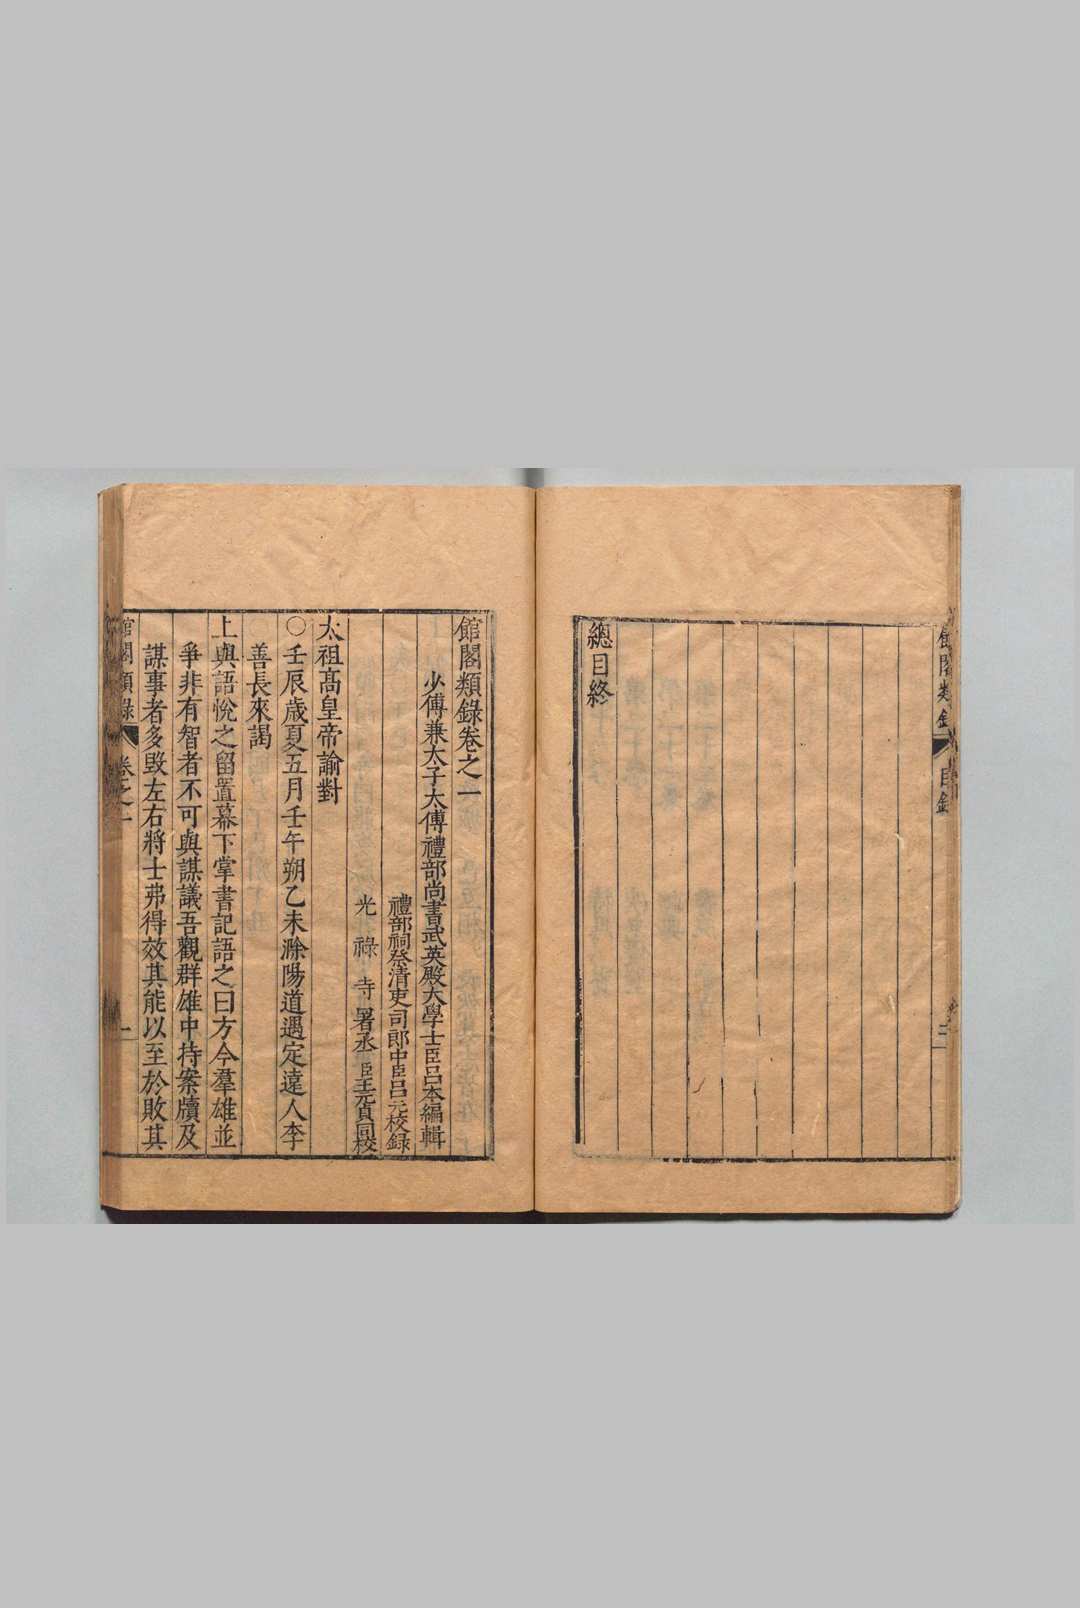 館閣類錄
目錄
二
總目終
館閣類錄卷之一
少傅兼太子太傅禮部尚書武英殿大學士臣呂本編輯
禮部祠祭清吏司郎中臣呂元校錄
光祿寺署丞臣王元貞同校
太祖高皇帝諭對
○壬辰歲夏五月壬午朔乙未滁陽道遇定遠人李
善長來謁
上與語悅之留置幕下掌書記語之曰方今羣雄並
爭非有智者不可與謀議吾觀群雄中持案牘及
謀事者多毀左右將士弗得效其能以至於敗其
館閣類錄
卷之一
一